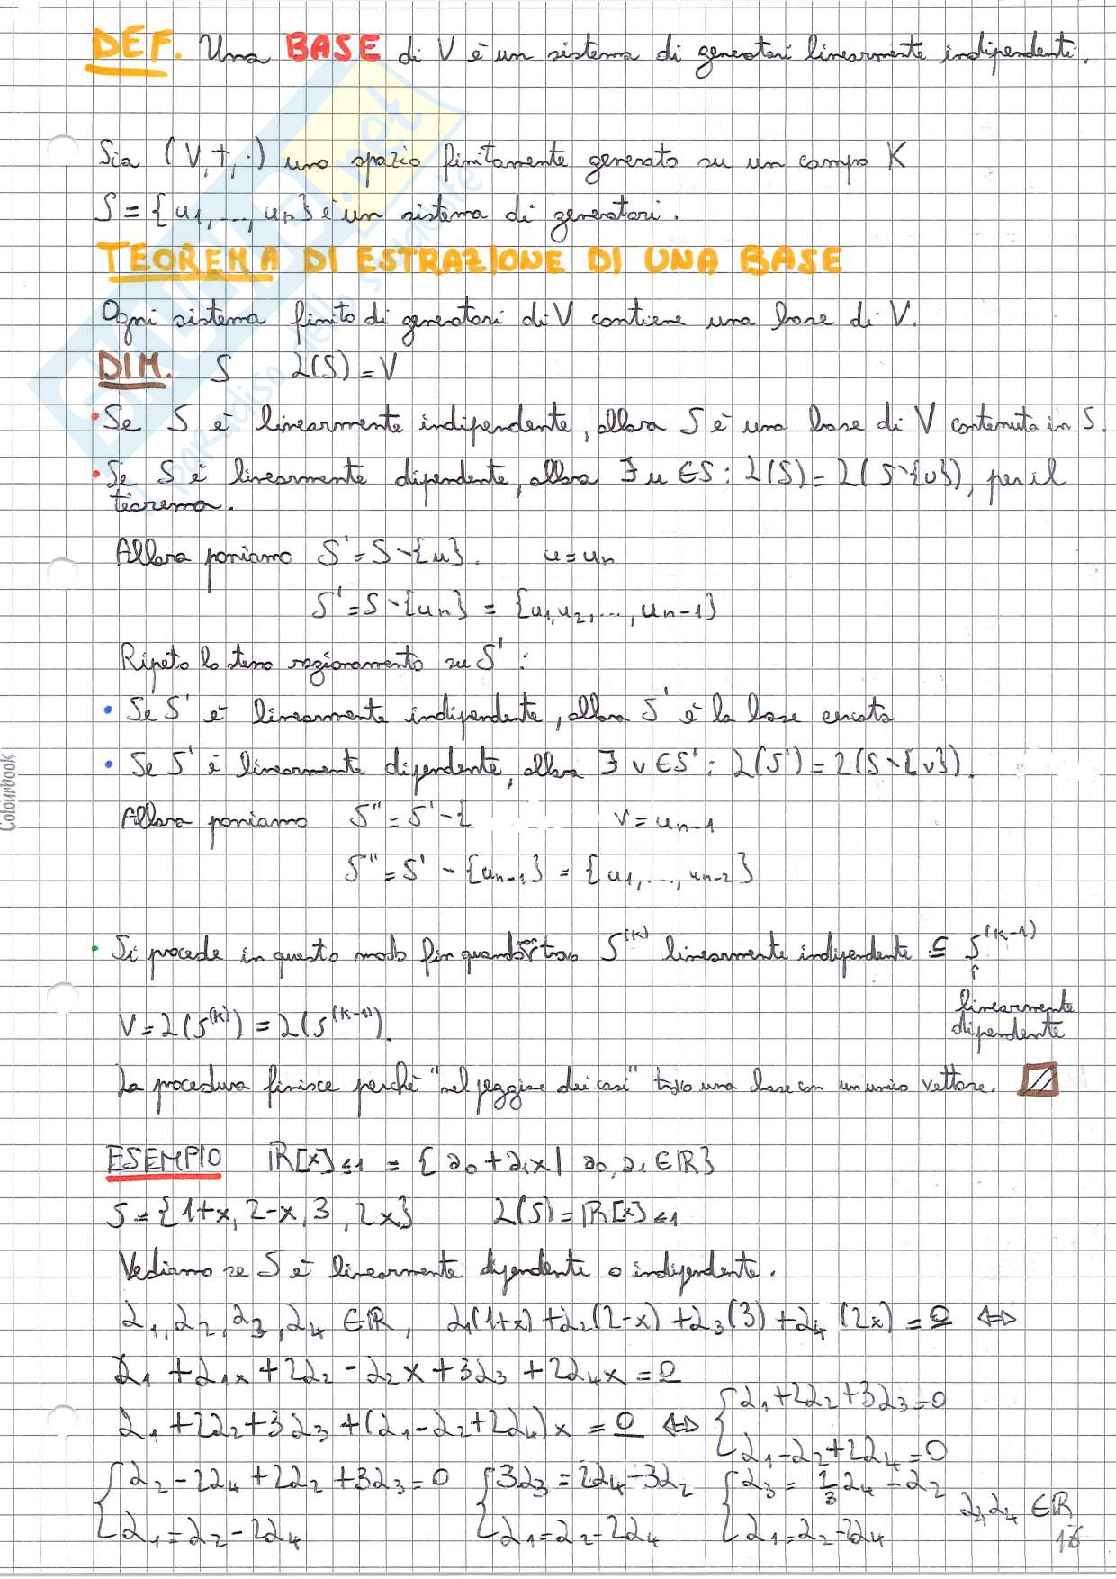 DEF. Una BASE di V è un sistema di generatori linearmente indipendenti.
Sia (V,+,·) uno spazio finitamente generato su un campo K
S={u1,...,un} è un sistema di generatori.
TEOREMA DI ESTRAZIONE DI UNA BASE
Ogni sistema finito di generatori di V contiene una base di V.
DIM. S L(S)=V
• Se S è linearmente indipendente, allora S è una base di V contenuta in S.
• Se S è linearmente dipendente, allora ∃ u ∈ S : L(S) = L(S∖{u}), per il
teorema.
Allora poniamo S'=S∖{u}. u=un
S'=S∖{un} = {u1,u2,...,un-1}
Ripeto lo stesso ragionamento su S' :
• Se S' è linearmente indipendente, allora S' è la base cercata
• Se S' è linearmente dipendente, allora ∃ v ∈ S' : L(S') = L(S∖{v}).
Allora poniamo S''=S'-{ v=un-1
S''=S' - {un-1} = {u1,...,un-2}
• Si procede in questo modo fin quando trovo S^(k) linearmente indipendente ⊆ S^(k-1)
↑
linearmente
dipendente
V=L(S^(k)) = L(S^(k-1)).
La procedura finisce perché "nel peggiore dei casi" trovo una base con un unico vettore.
ESEMPIO ℝ[x]≤1 = {a0+a1x | a0,a1 ∈ ℝ}
S={1+x, 2-x, 3, 2x} L(S)=ℝ[x]≤1
Vediamo se S è linearmente dipendente o indipendente.
λ1,λ2,λ3,λ4 ∈ ℝ, λ1(1+x)+λ2(2-x)+λ3(3)+λ4(2x)=0 ⇔
λ1+λ1x+2λ2-λ2x+3λ3+2λ4x=0
λ1+2λ2+3λ3+(λ1-λ2+2λ4)x=0 ⇔ { λ1+2λ2+3λ3=0
λ1-λ2+2λ4=0
{ λ2-2λ4+2λ2+3λ3=0 { 3λ3=2λ4-3λ2 { λ3=2/3λ4-λ2 λ2,λ4 ∈ ℝ
λ1=λ2-2λ4 λ1=λ2-2λ4 λ1=λ2-2λ4
Colourbook